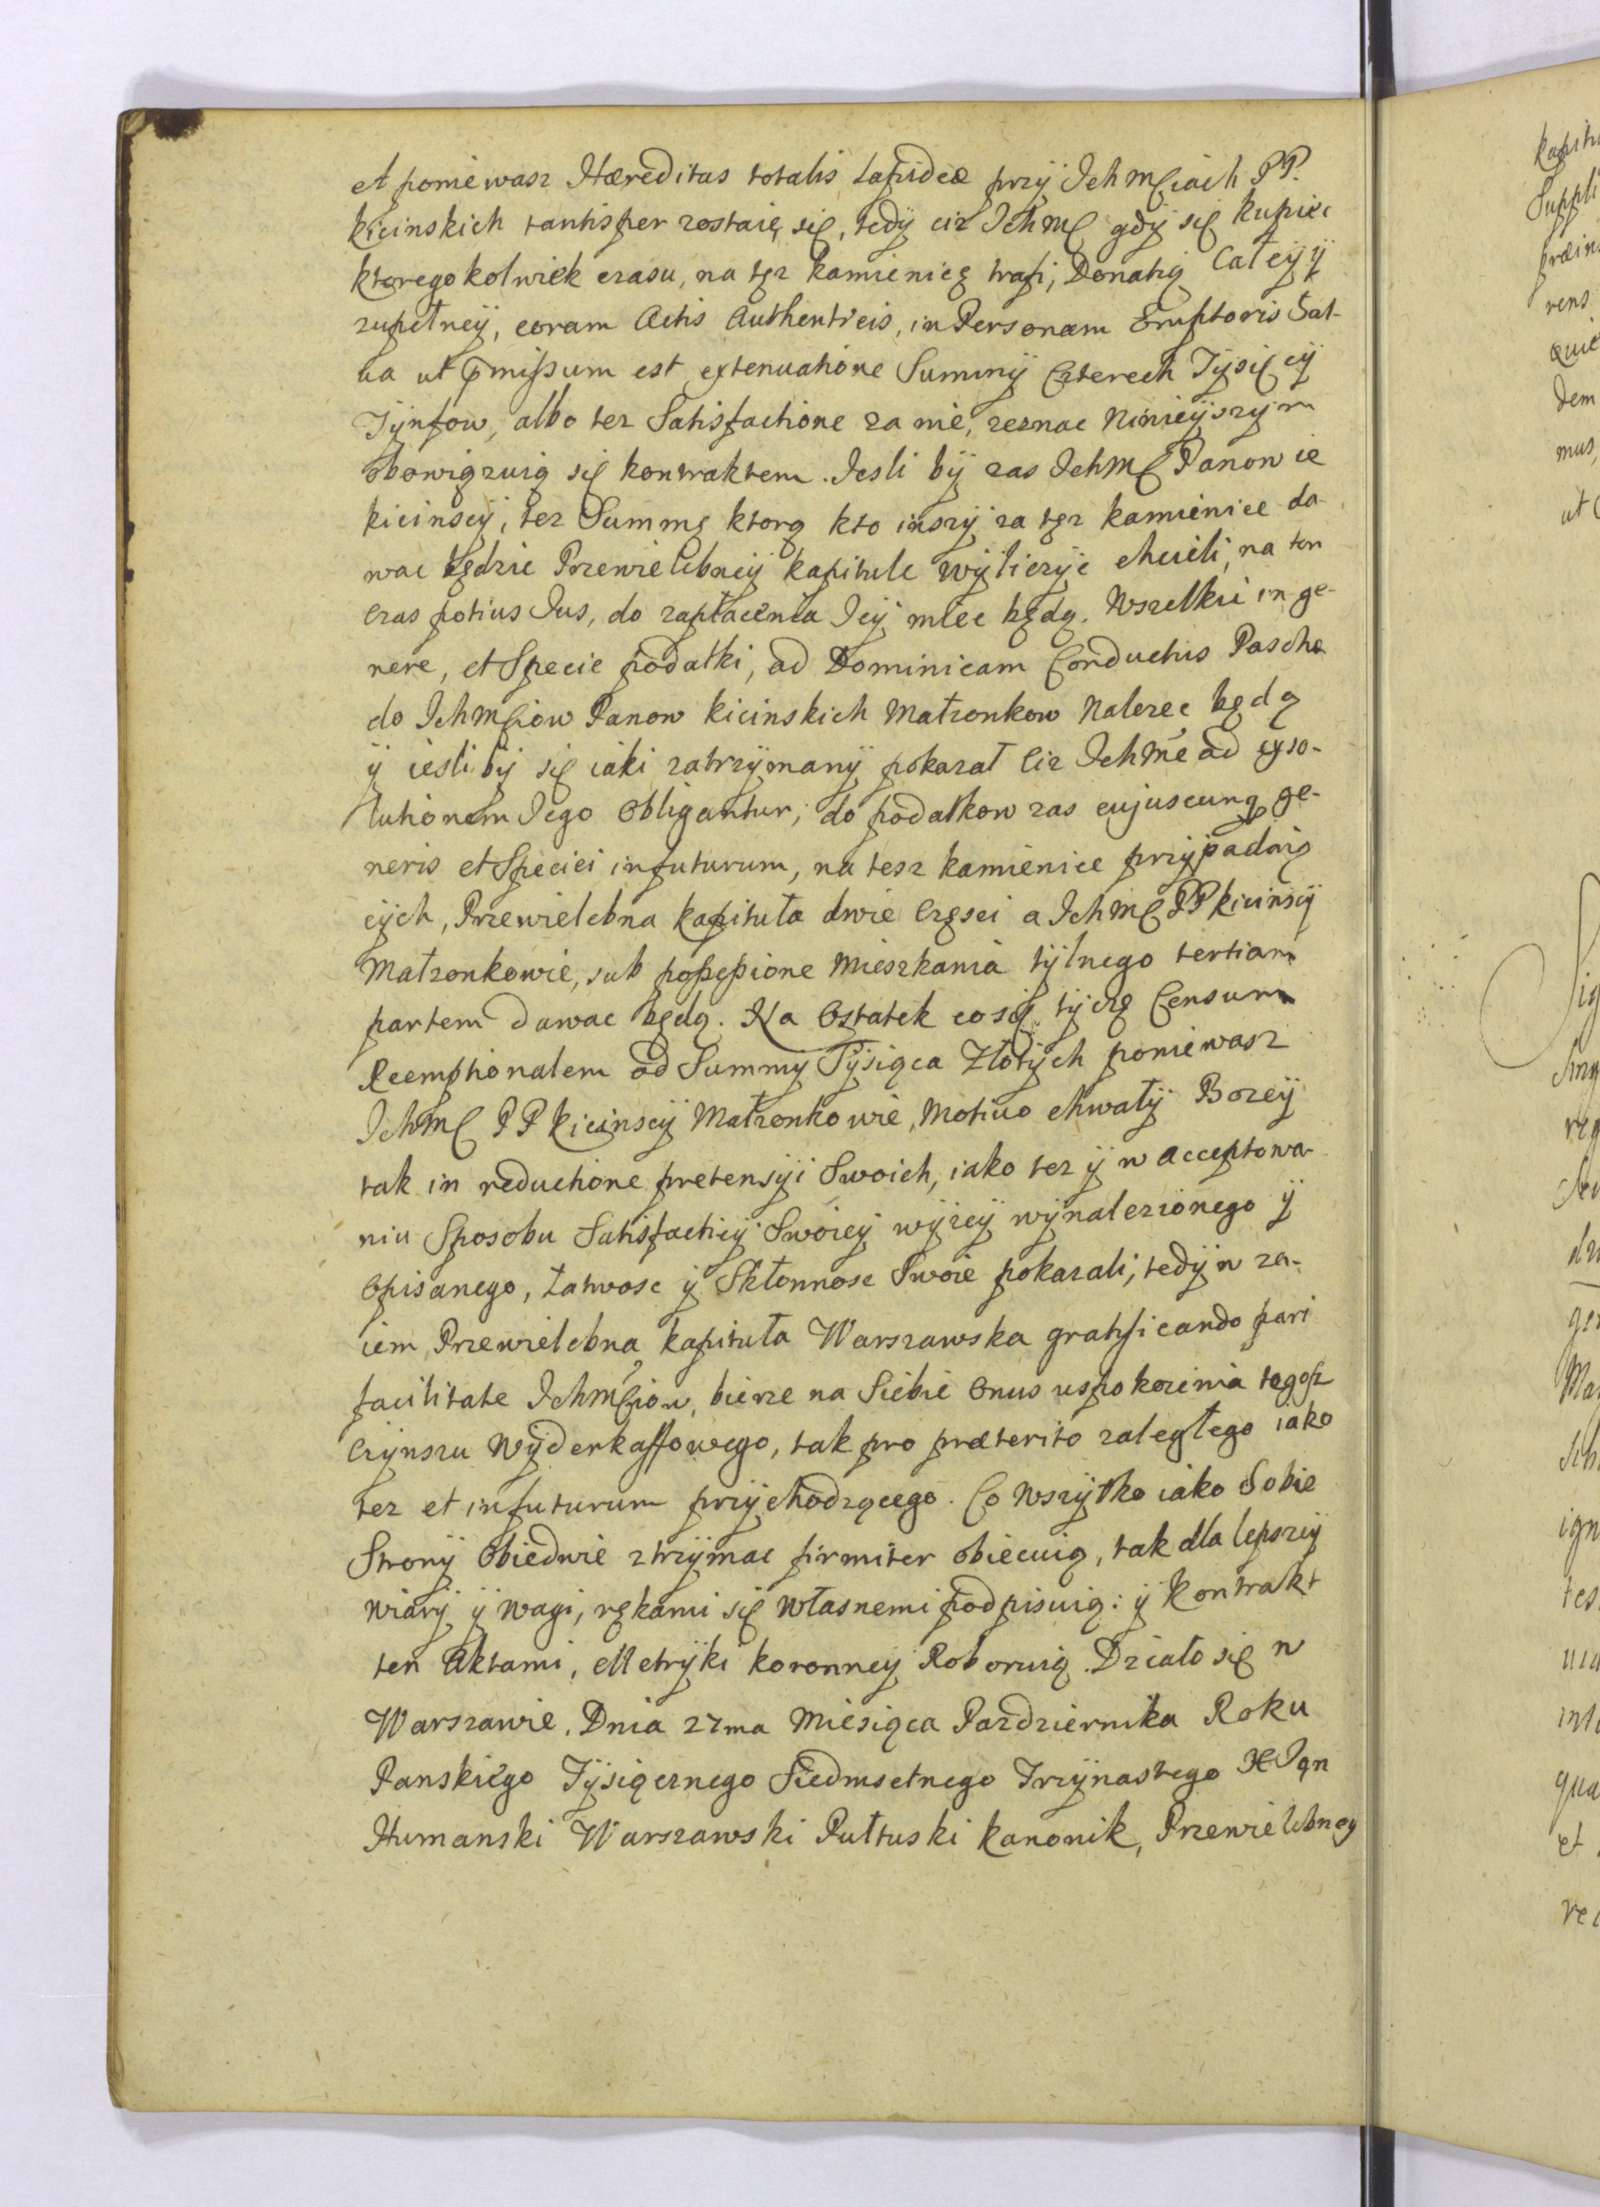 et poniewasz Hæreditas totalis Lapideæ przÿ Ich Mściach PP.
kicinskich tantisper zostaię się, tedÿ ciż Ich Mć gdÿ się kupiec
ktoregokolwiek czasu, na tęz kamienicę trafi, Donatią Całeÿ ÿ
zupełneÿ, coram Actis Authenticis, in Personam Emptoris Sal-
va ut p̄missum est extenuatione Summÿ Czterech Tÿsięcÿ
Tÿnfow, albo tez Satisfactione za nie, zeznac Ninieÿszÿm
obowiązuią się kontraktem. Iesli bÿ zas Ich Mć Panowie
kicinscÿ, tez Summę ktorą kto inszÿ za tęz kamienice da
wac będzie Przewielebneÿ kapitule wÿliczÿc chcieli, na ten
czas potius Ius, do zapłacenia Ieÿ miec będą. Wszelkie in ge-
nere, et Specie podatki, ad Dominicam Conductus Paschæ
do Ich Mściow Panow kicinskich Małzonkow Nalezec będą
ÿ iesli bÿ się iaki zatrzÿmanÿ pokazał Ciz Ich Mć ad exso-
lutionem Iego Obligantur; do podatkow zas cujuscunq ge-
neris et Speciei in futurum, na tesz kamienice przÿpadaią
cÿch, Przewielebna kapituła dwie Częsci a Ich Mć PP kicinscÿ
Małzonkowie, sub possessione Mieszkania tÿlnego tertiam
partem dawac będą. Na Ostatek co się tÿczę Censum
Reemptionalem od Summy Tÿsiąca Złotÿch poniewasz
Ich Mć PP kicinscÿ Małzonkowie, Motivo chwałÿ Bozeÿ
tak in reductione pretensÿi Swoich, iako tez ÿ w acceptowa-
niu Sposobu Satisfactieÿ Swoieÿ wÿzeÿ wÿnalezionego ÿ
Opisanego, Łatwosc ÿ Skłonnosc Swoie pokazali, tedÿ w za-
iem Przewielebna kapituła Warszawska gratificando pari
facilitate Ich Mściow, bierze na Siebie Onus uspokoienia tegosz
Czÿnszu Wÿderkaffowego, tak pro præterito zaległego iako
tez et in futurum przÿchodzącego. Co Wszÿtko iako Sobie
Stronÿ Obiedwie ztrzÿmac firmiter obiecuią, tak dla lepszeÿ
wiarÿ ÿ wagi, rękami się własnemi podpisuią: ÿ kontrakt
ten Aktami, Metrÿki koronneÿ Roboruią. Działo się w
Warszawie. Dnia 27ma Miesiąca Pazdziernika Roku
Panskiego Tÿsiącznego Siedmsetnego Trzÿnastego X Ign
Humanski Warszawski Pułtuski kanonik, Przewielebneÿ